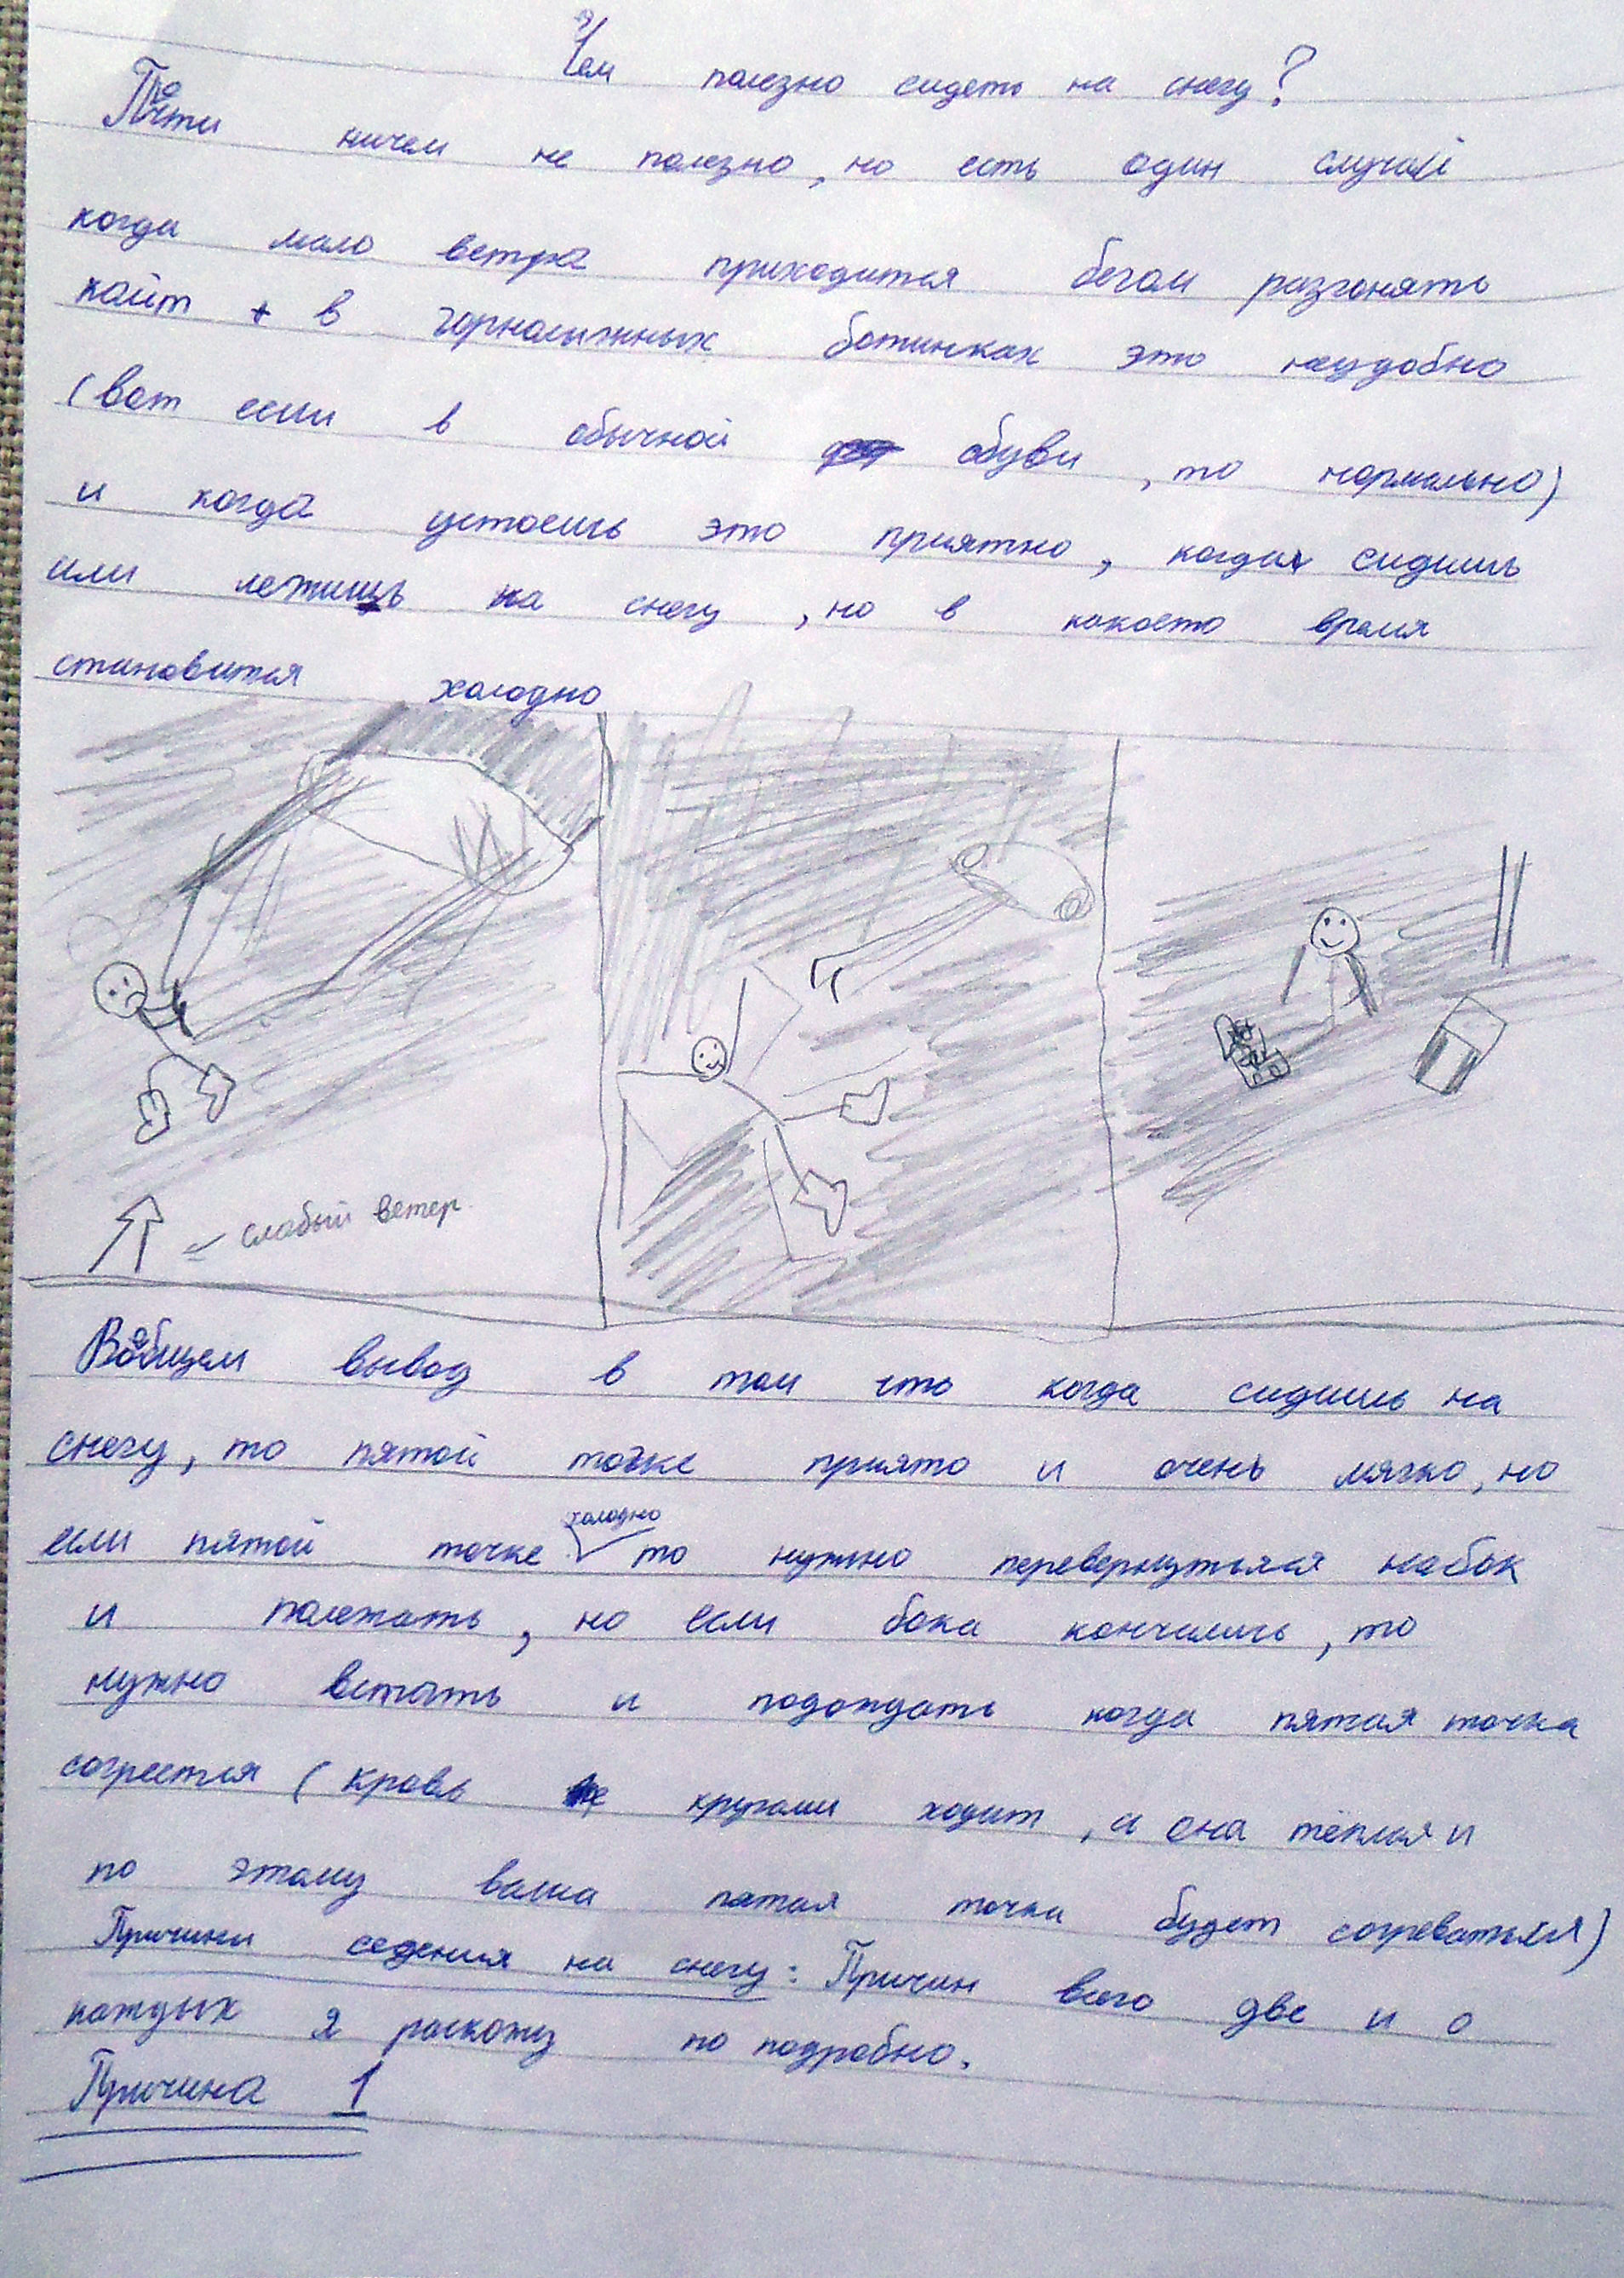 Чем полезно сидеть на снегу?
Почти ничем не полезно, но есть один случай
когда мало ветра приходится бегом разгонять
кайт + в горнолыжных ботинках это неудобно
(вот если в обычной обуви, то нормально)
и когда устоешь это приятно, когда сидишь
или лежишь на снегу, но в какоето время
становится холодно
слабый ветер
Вообщем вывод в том что когда сидишь на
снегу, то пятой точке приято и очень мягко, но
если пятой точке холодно то нужно перевернуться набок
и полежать, но если бока кончились, то
нужно встать и подождать когда пятая точка
согреется (кровь кругами ходит, а она тёплая и
по этому ваша пятая точка будет согреваться)
Причини седения на снегу: Причин всего две и о
каждых я раскожу по подробно.
Причина 1